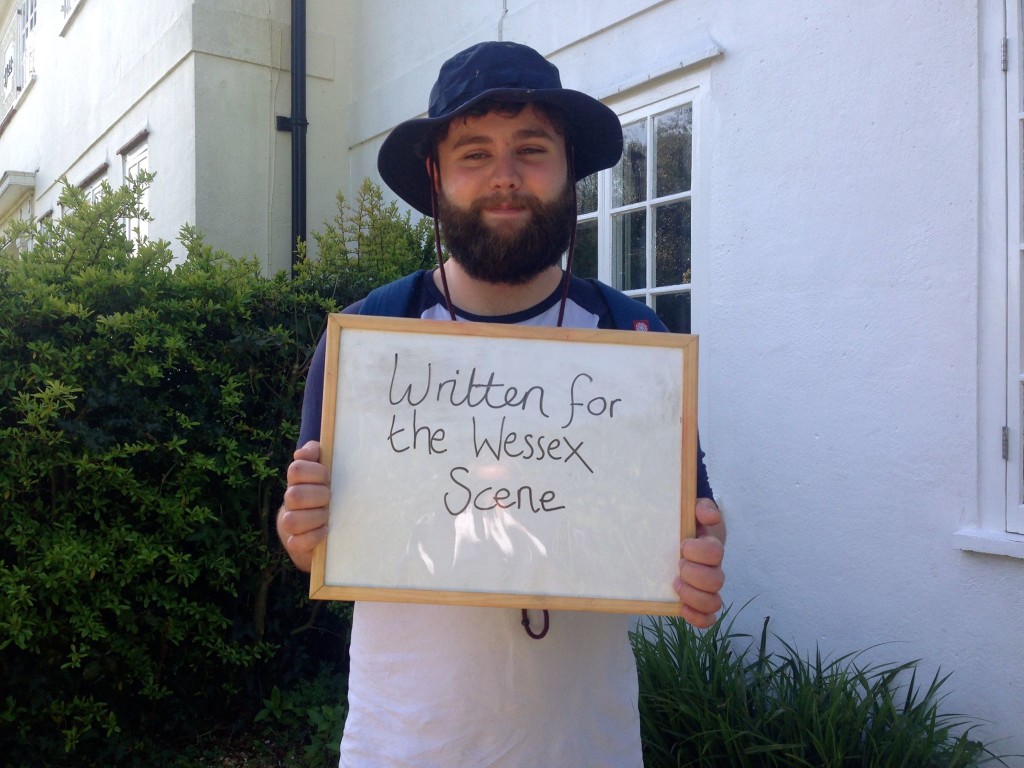 Written for
the Wessex
Scene